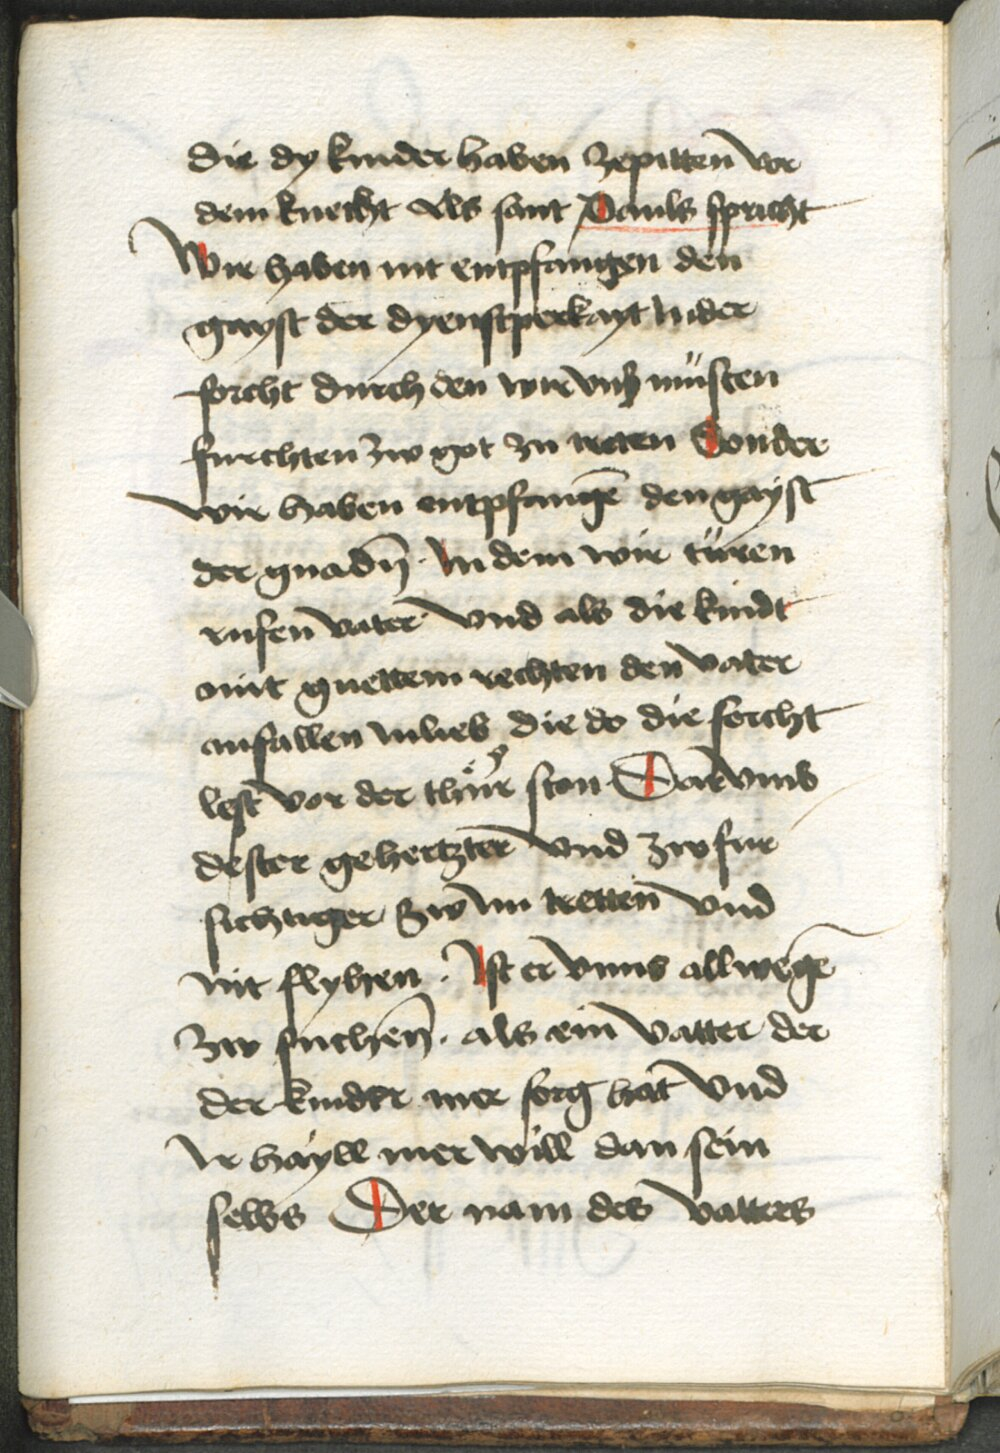 die dy kinder haben zepitten vor
dem knecht Als sant Pauls spricht
Wir haben nit entpfangen den
gayst der dyenstperkayt In der
forcht durch den wir vnß müsten
furchten zw got zu treten Sonder
wir haben entpfangē den gayst
der gnadn̄ · In dem wir türen
rufen vater Vnd als die kindt
mit guettem rechten den vater
anfallen In lieb die do die forcht
lest vor der thür ston Dar vmb
dester gehertzter Vnd zw fur
sichtiger zw im tretten Vnd
nit flyhen · Ist er vnns allwegē
zw suchen̄ · als ein Vatter der
der kinder mer sorg hat Vnd
Ir hayll mer will dan sein
selbs Der nam des vatters